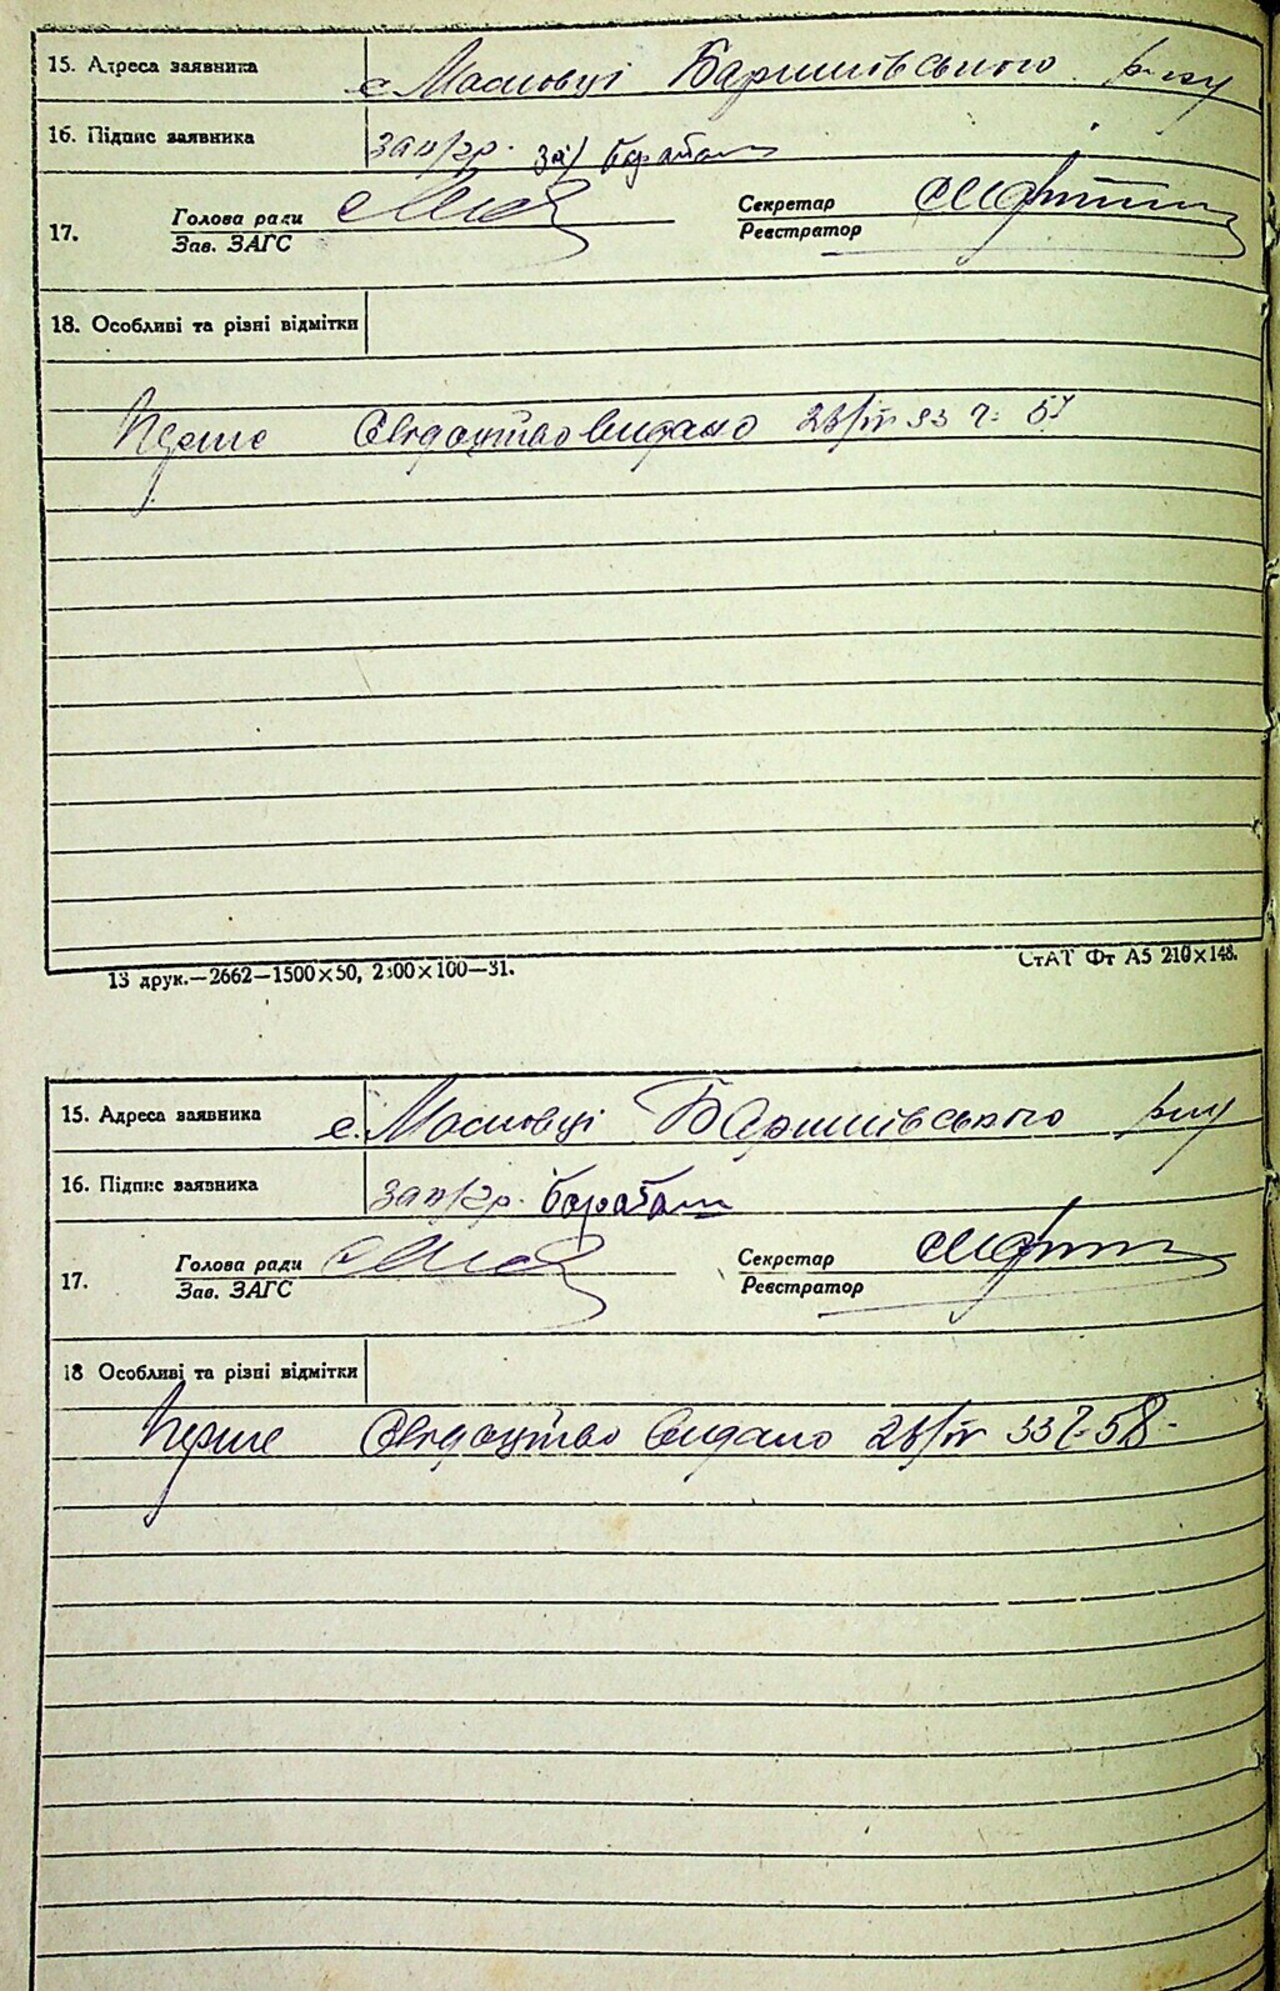 15. Адреса заявника с. Масловці Баришівського р-ну
16. Підпис заявника
17. Голова ради Секретар
Зав. ЗАГС Реєстратор
18. Особливі та різні відмітки
Перше Свідоцтво видано 23/IV 33 г. 57
13 друк.—2662—1500×50, 2500×100—31.
СтАТ Фт А5 210×148.
15. Адреса заявника с. Масловці Баришівського р-ну
16. Підпис заявника
17. Голова ради Секретар
Зав. ЗАГС Реєстратор
18 Особливі та різні відмітки
Перше Свідоцтво видано 23/IV 33 г. 58